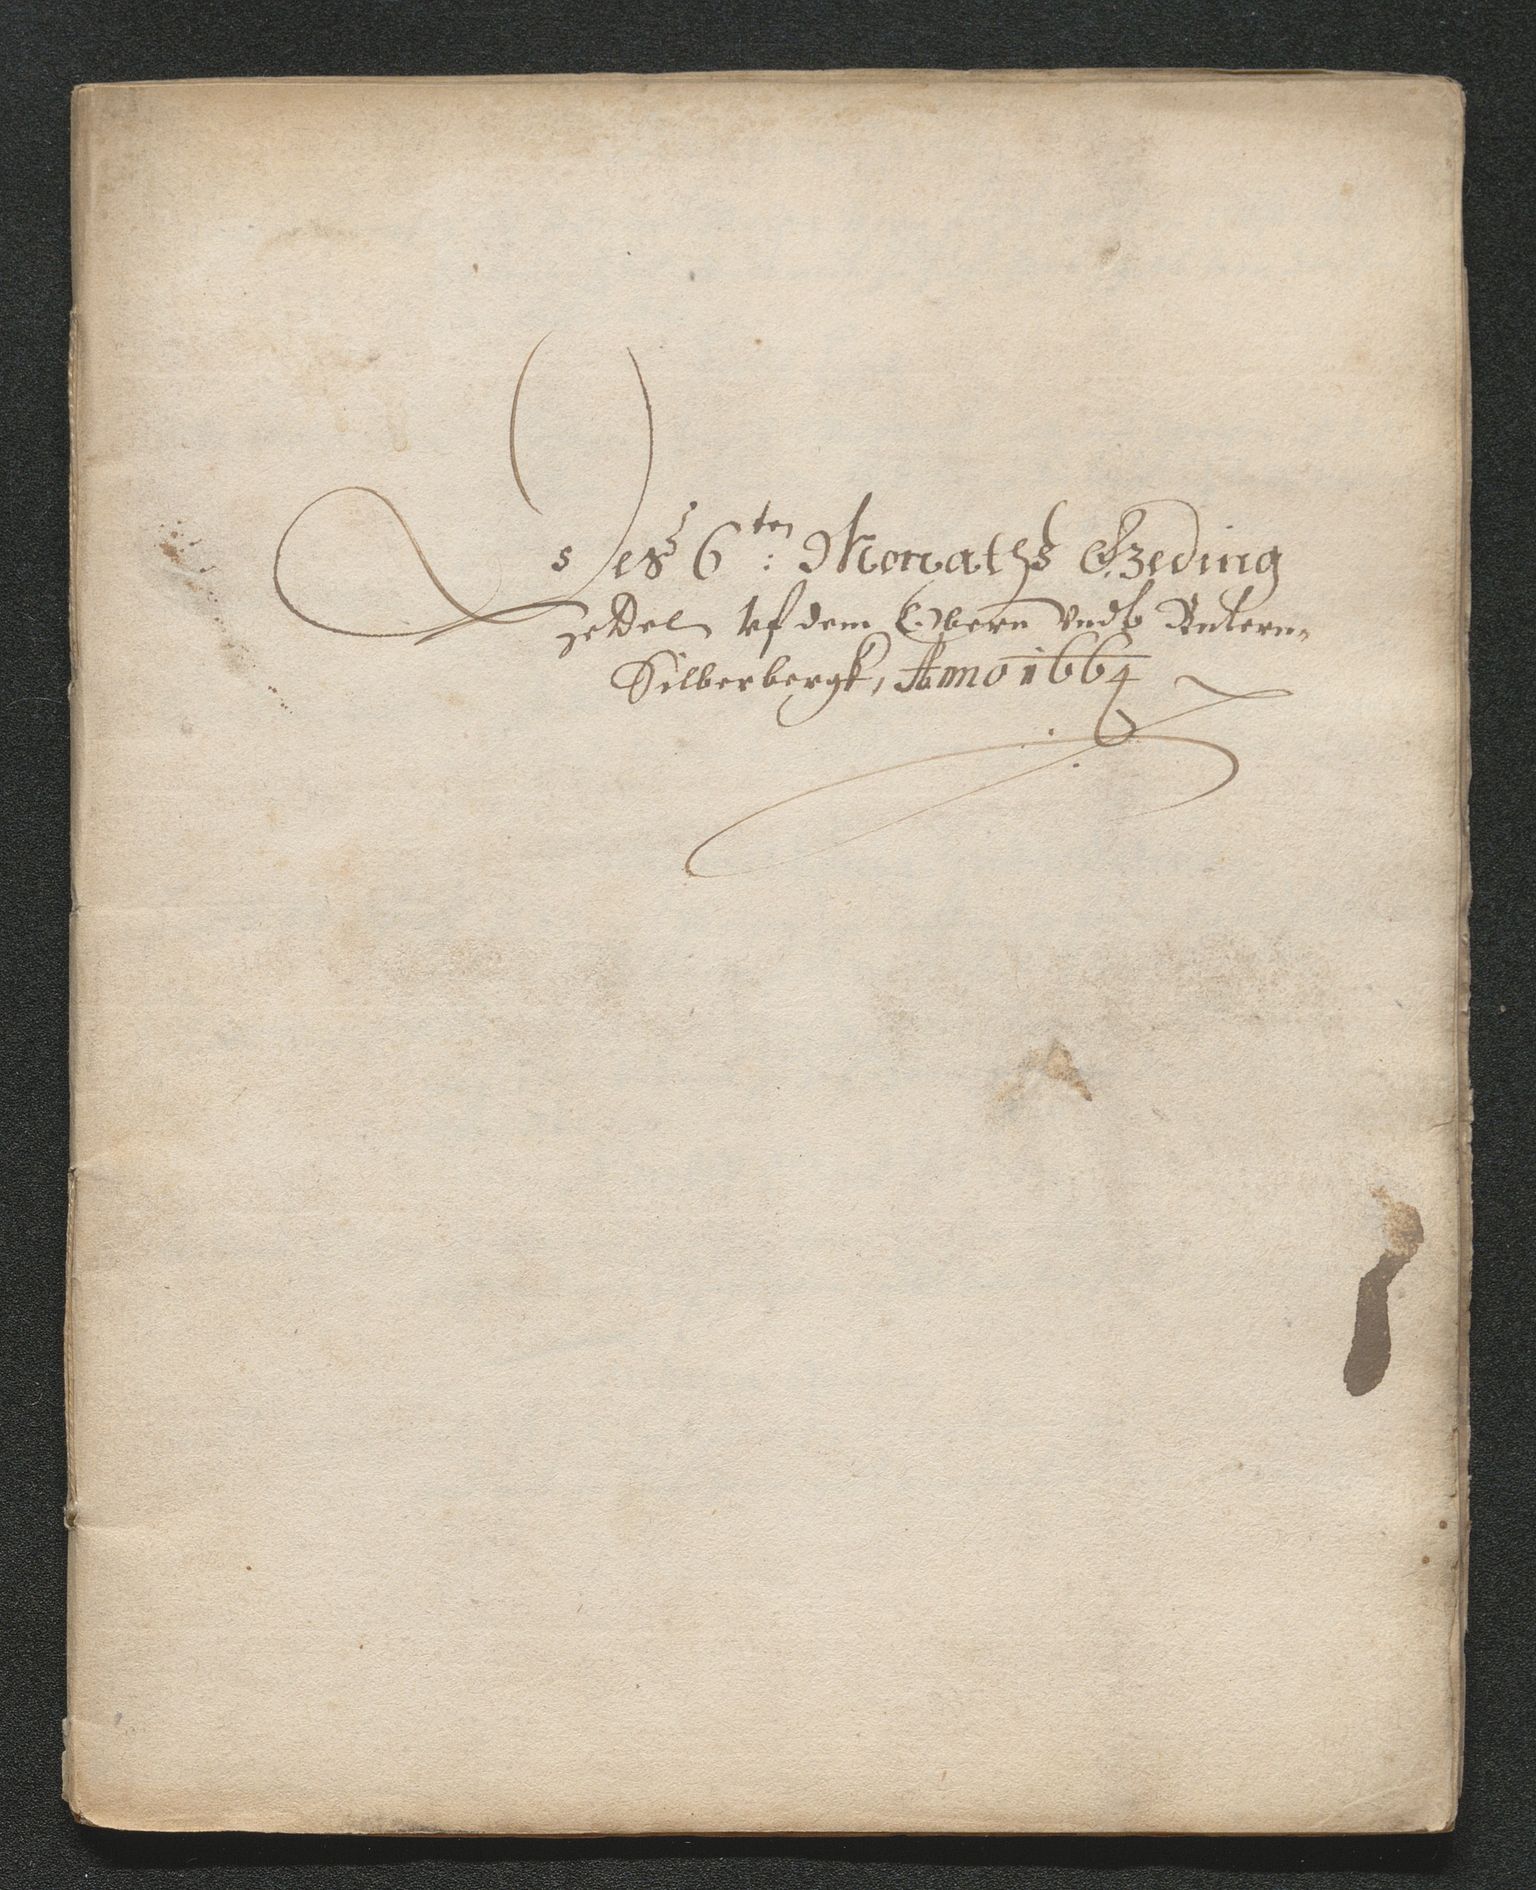 Des 6ten: Monaths Gzeding
Zeddel vf dem Obern vndt Vntern
Silberbergk, Anno 1664